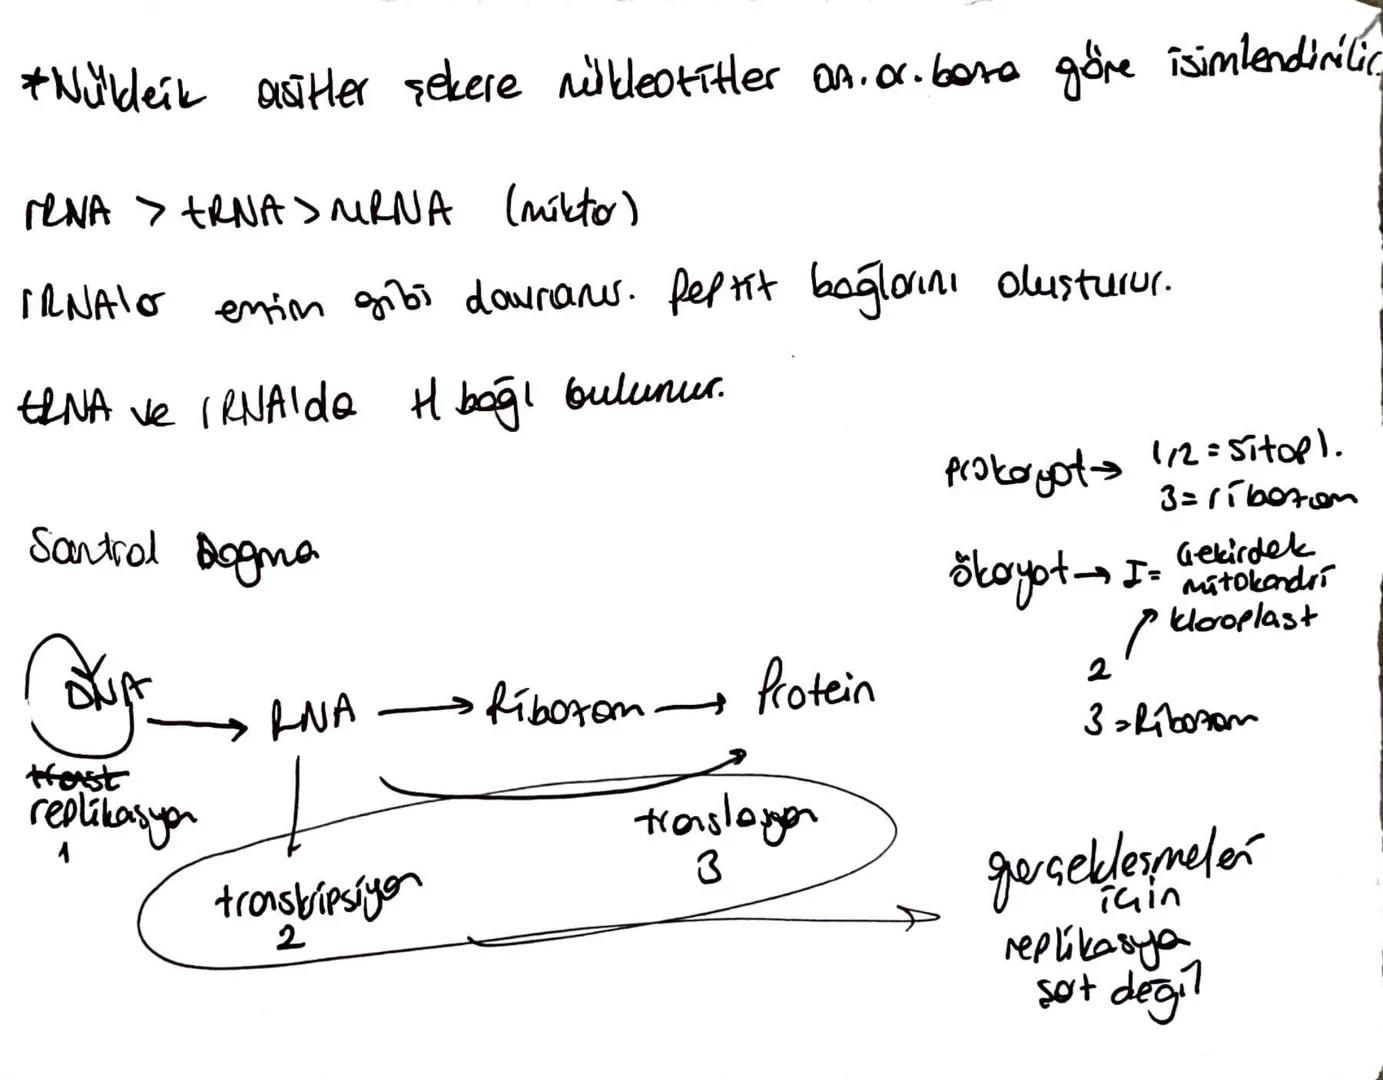 *Nükleik asitler şekere nükleotitler an. or. baza göre isimlendirilir
rRNA > tRNA > mRNA (miktar)
rRNA'lar enzim gibi davranır. Peptit bağlarını oluşturur.
tRNA ve rRNA'da H bağı bulunur.
prokaryot → 1,2 = sitopl.
3 = ribozom
Santrol Dogma
ökaryot → I = Çekirdek
mitokondri
kloroplast
2
3 = Ribozom
DNA → RNA → Ribozom → Protein
replikasyon
1
translasyon
3
transkripsiyon
2
gerçekleşmeleri
için
replikasyo
şart değil